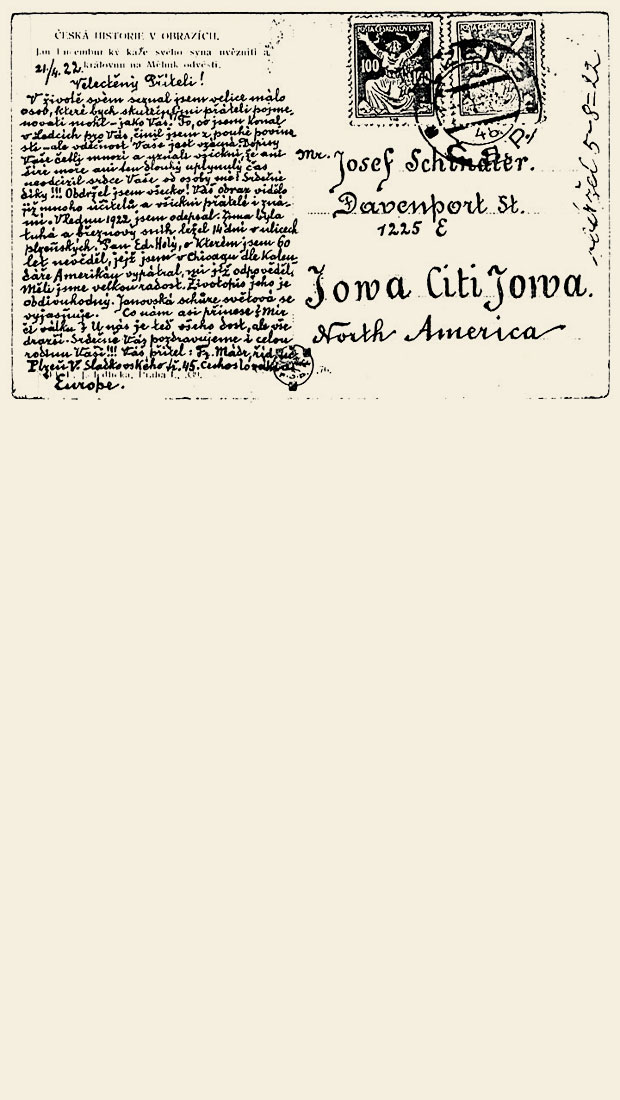 ČESKÁ HISTORIE V OBRAZÍCH.
Jan Lucemburský kaže svého syna uvězniti a
královnu na Mělník odvésti.
21/4. 22.
Velectěný Příteli!
V životě svém seznal jsem velice málo
osob, které bych skutečnými přáteli pojme-
novati mohl - jako Vás! To, co jsem konal
v Ledcích pro Vás, činil jsem z pouhé povinno
sti - ale vděčnost Vaše jest vzácná. Dopisy
Vaše četli mnozí a uznali všichni, že ani
širé moře ani ten dlouhý uplynulý čas
neodcizil srdce Vaše od osoby mé! Srdečné
díky!!! Obdržel jsem všecko! Váš obraz vidělo
již mnoho učitelů a všichni přátelé i zná-
mí. V lednu 1922 jsem odepsal. Zima byla
tuhá a březnový sníh ležel 14 dní v ulicích
plzeňských. Pan Ed. Holý, o kterém jsem 60
let nevěděl, jejž jsem v Chicagu dle Kalen-
dáře Amerikán vypátral, mi již odpověděl.
Měli jsme velkou radost. Životopis jeho je
obdivuhodný. Janovská schůze světová se
vyjasňuje. Co nám asi přinese? Mír
či válku? U nás je teď všeho dost, ale vše
drazí. Srdečně Vás pozdravujeme i celou
rodinu Vaši!!! Váš přítel: Fr. Mádr, říd.
Plzeň V. Sladkovského tř. 45. Československo
Europe.
POŠTA ČESKOSLOVENSKÁ
100
POŠTA ČESKOSLOVENSKÁ
4b
Mr. Josef Schindler.
Davenport St.
1225 E
Jowa Citi Jowa.
North America
5-8-22